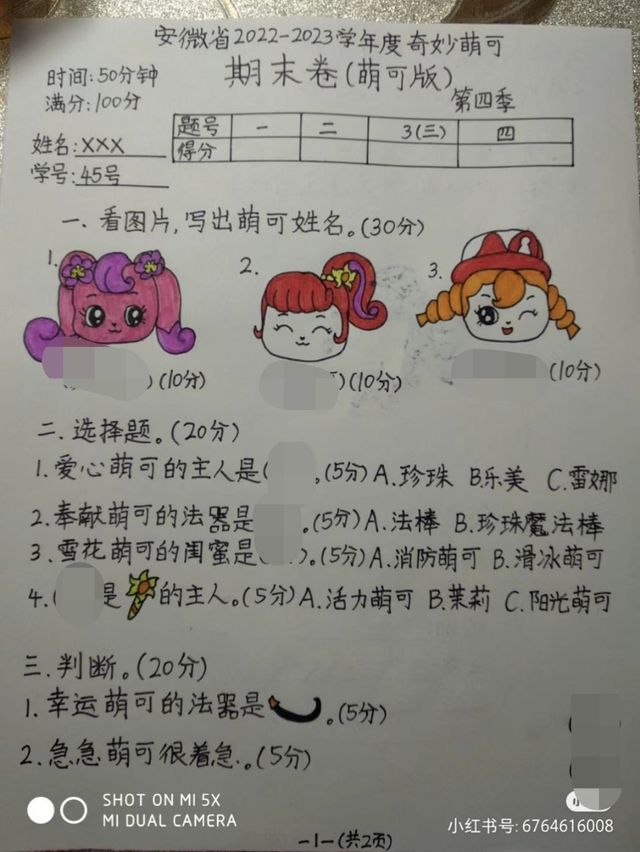 安徽省2022-2023学年度奇妙萌可
期末卷(萌可版)
时间:50分钟
满分:100分
第四季
姓名:XXX
学号:45号
题号 一 二 3(三) 四
得分
一、看图片,写出萌可姓名。(30分)
1. 2. 3.
)(10分) )(10分) (10分)
二.选择题。(20分)
1.爱心萌可的主人是( 。(5分)A.珍珠 B.乐美 C.雷娜
2.奉献萌可的法器是 。(5分)A.法棒 B.珍珠魔法棒
3.雪花萌可的闺蜜是( )。(5分)A.消防萌可 B.滑冰萌可
4.( 是 的主人。(5分)A.活力萌可 B.茉莉 C.阳光萌可
三.判断。(20分)
1.幸运萌可的法器是 。(5分)
2.急急萌可很着急。(5分)
SHOT ON MI 5X
MI DUAL CAMERA
小红书号: 6764616008
-1-(共2页)